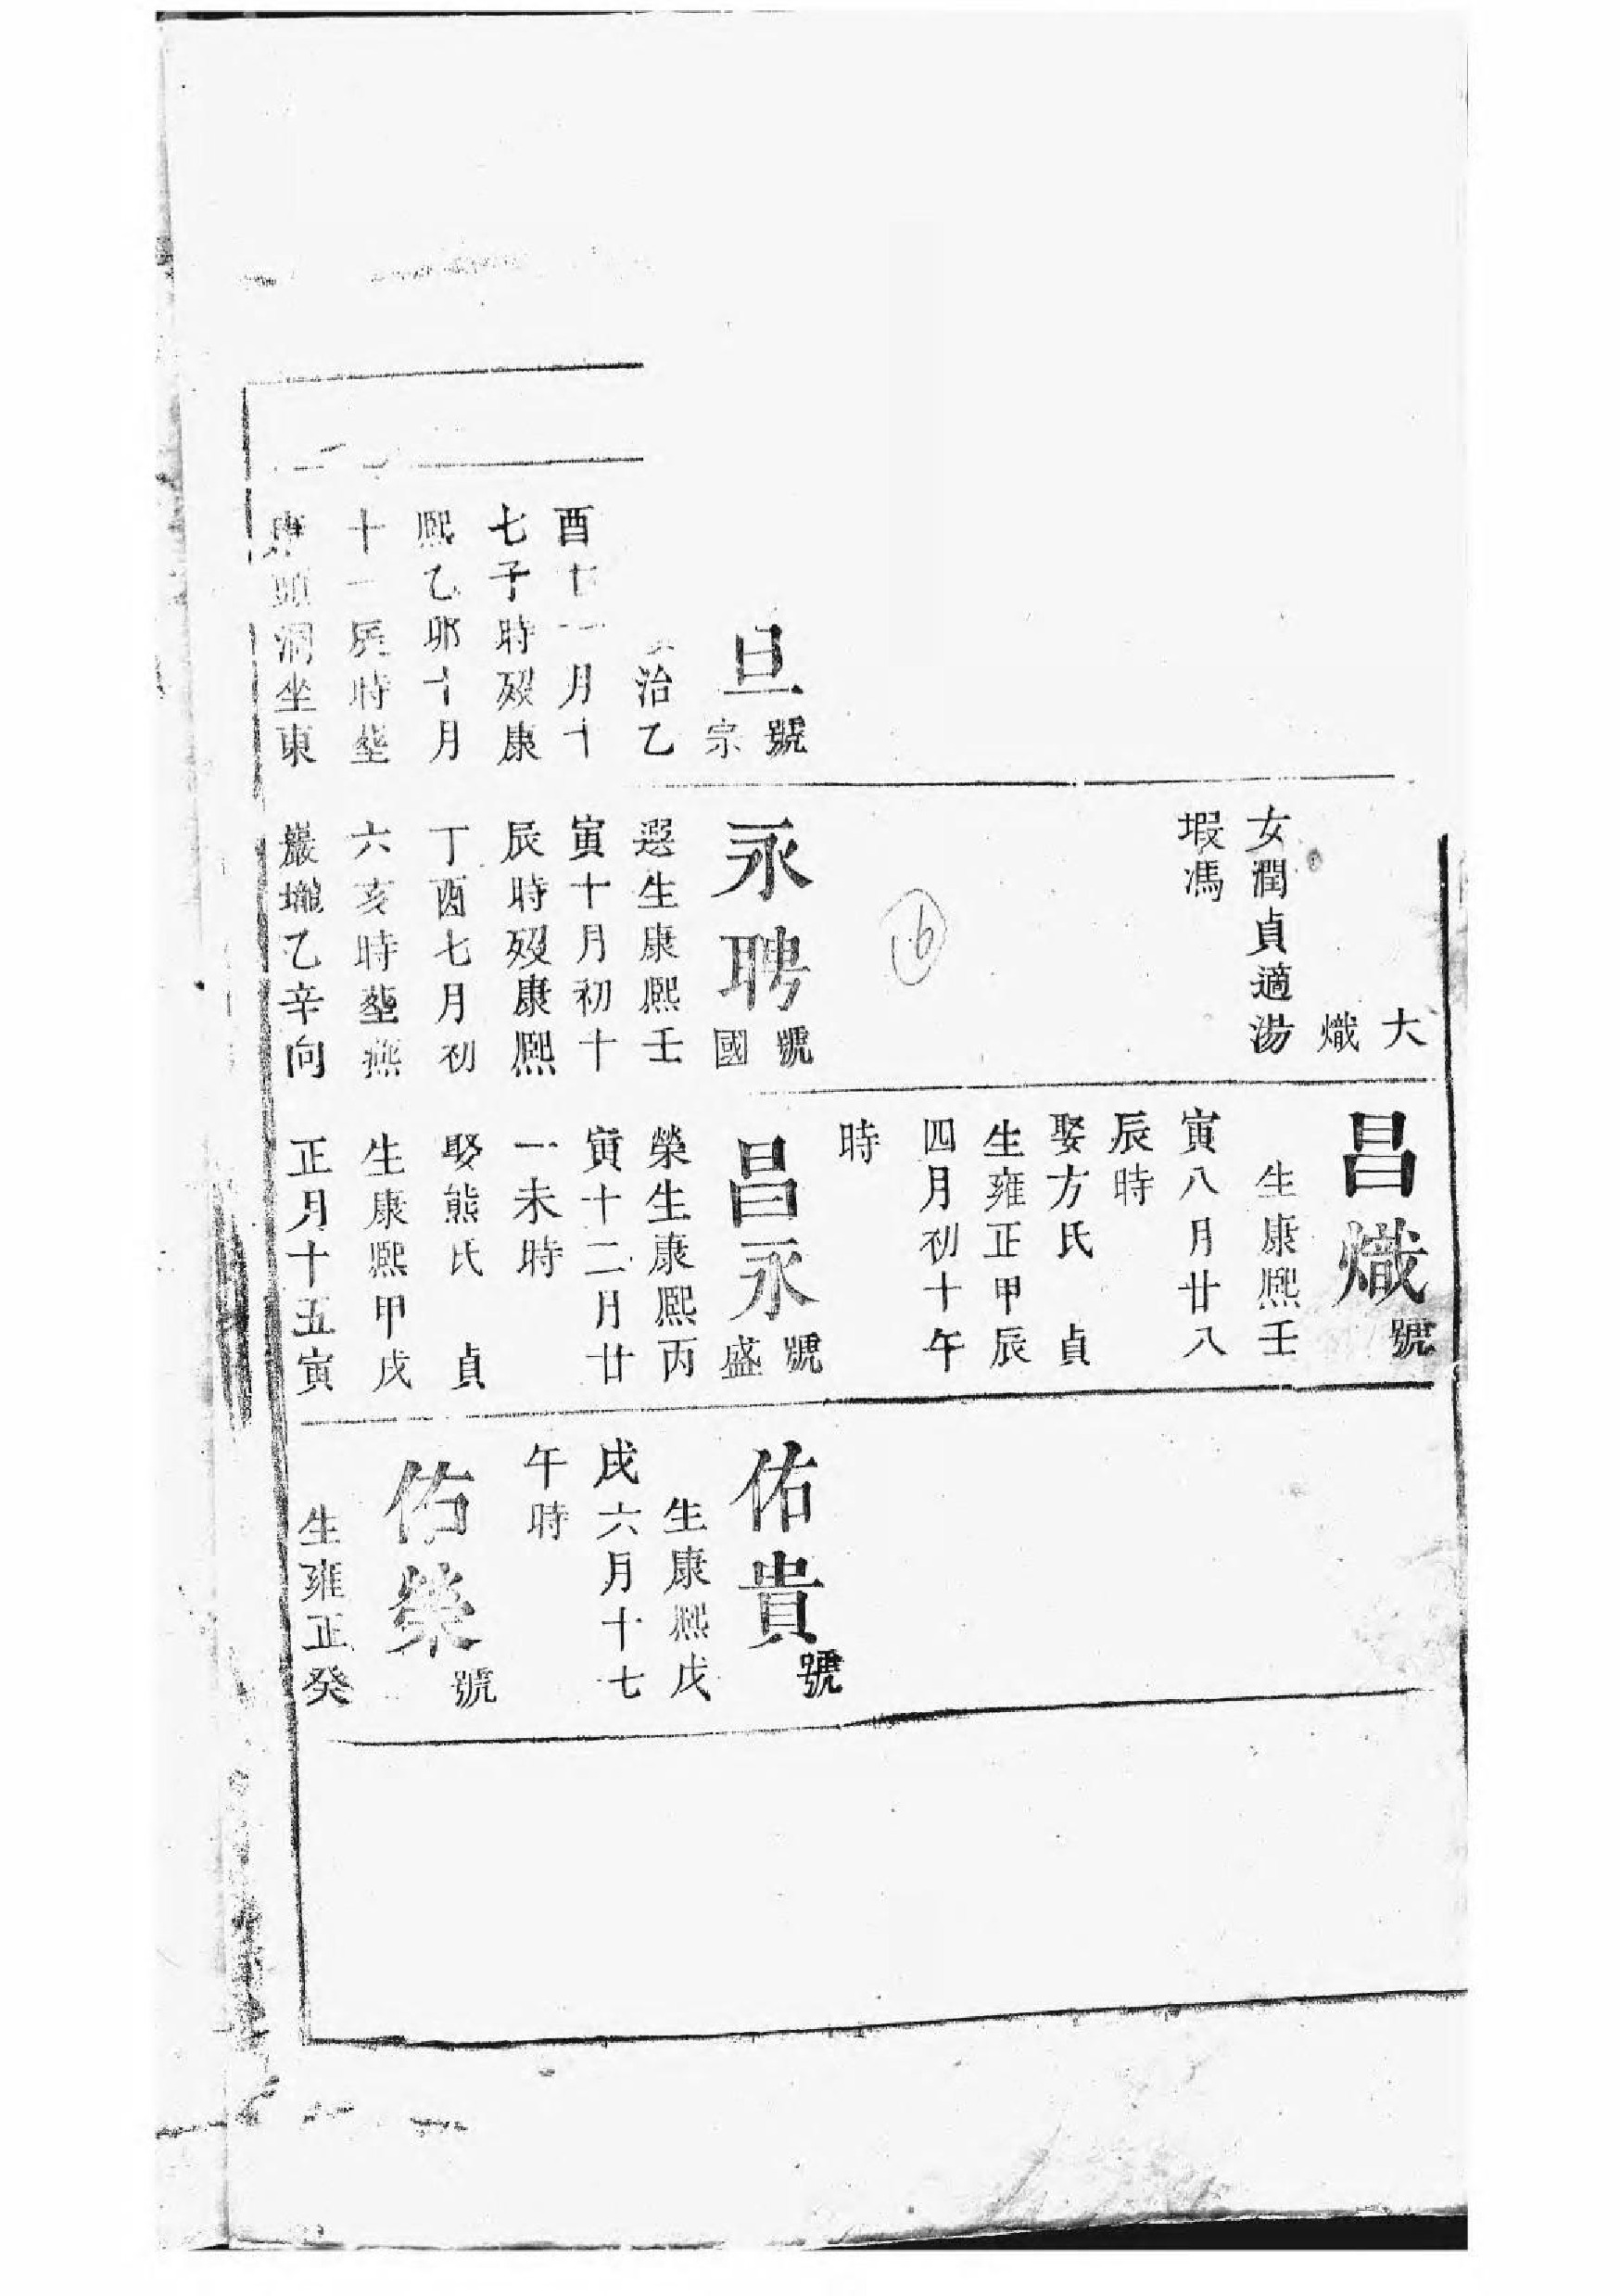 旦號
宗
治乙
酉十一月十
七子時歿康
熙乙卯十月
十一辰時塟
頭洞坐東
大
熾
女潤貞適湯
塅馮
16
永聘號
國
選生康熙壬
寅十月初十
辰時歿康熙
丁酉七月初
六亥時塟燕
巖壠乙辛向
昌熾號
生康熙壬
寅八月廿八
辰時
娶方氏 貞
生雍正甲辰
四月初十午
時
昌永號
盛
榮生康熙丙
寅十二月廿
一未時
娶熊氏 貞
生康熙甲戌
正月十五寅
佑貴號
生康熙戊
戌六月十七
午時
佑榮號
生雍正癸